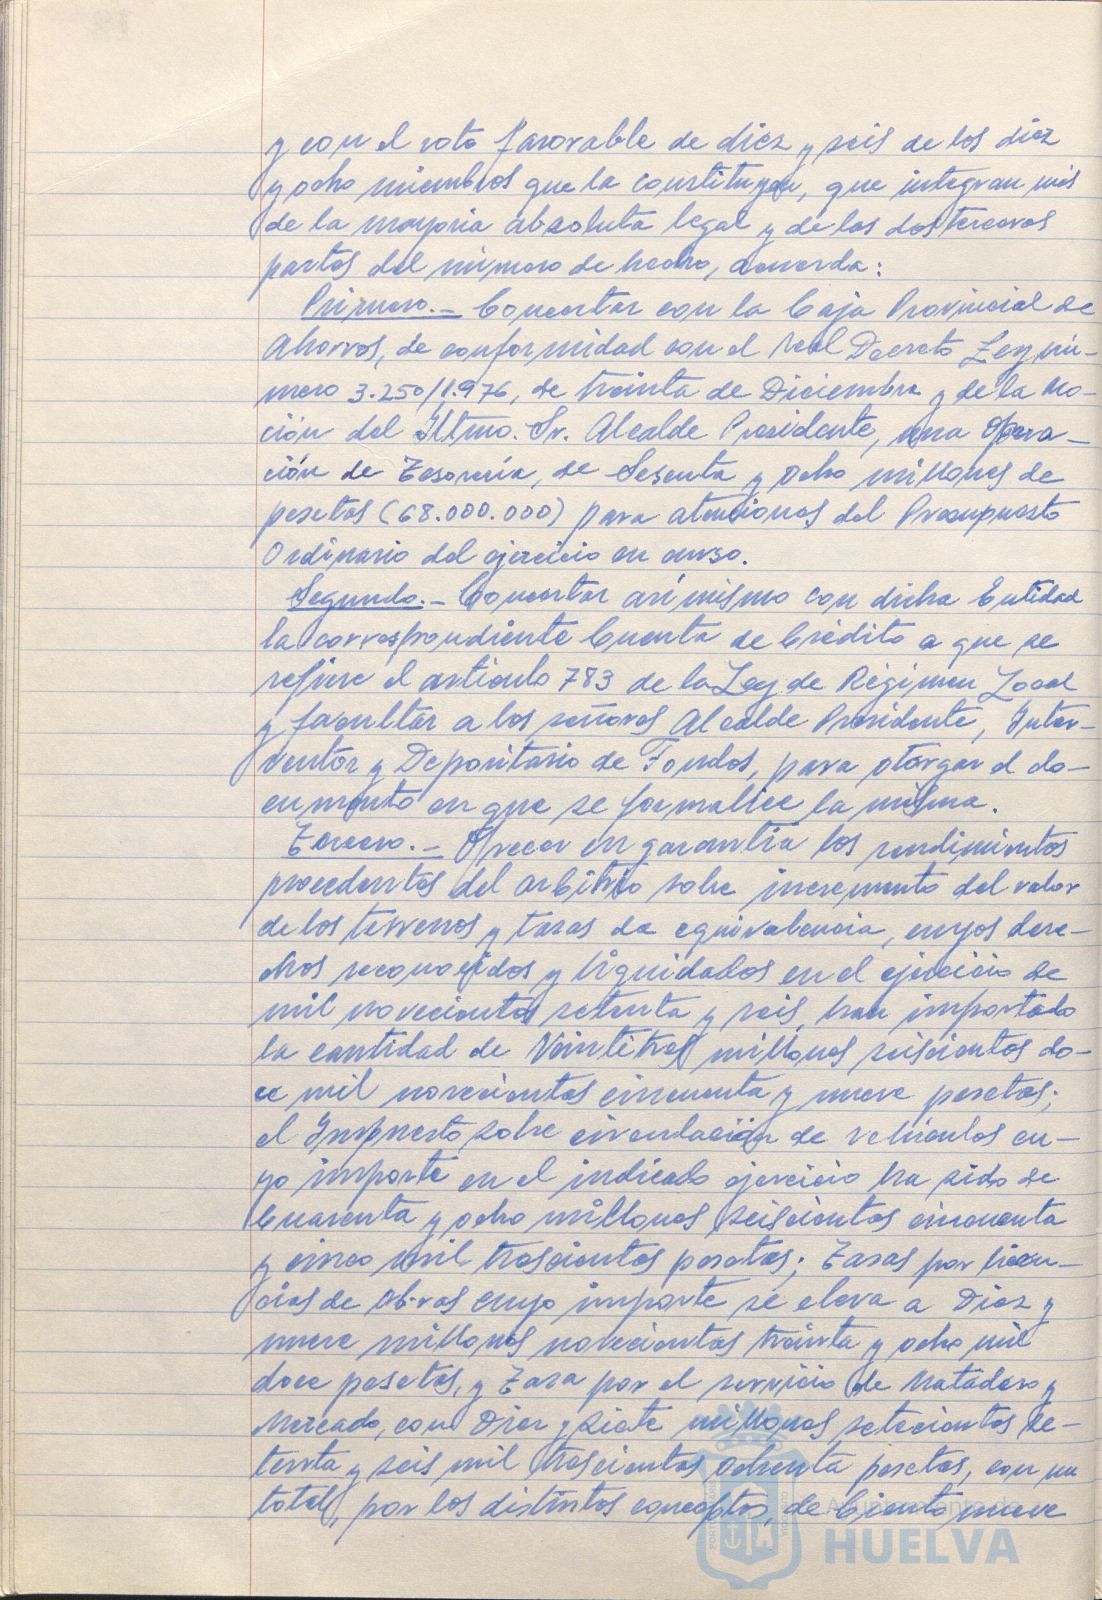 y con el voto favorable de diez y seis de los diez
y ocho miembros que la constituyen, que integran más
de la mayoría absoluta legal y de las dos terceras
partes del número de hecho, acuerda:
Primero.- Concertar con la Caja Provincial de
Ahorros, de conformidad con el Real Decreto Ley nú-
mero 3.250/1.976, de treinta de Diciembre y de la Mo-
ción del Iltmo. Sr. Alcalde Presidente, una Opera-
ción de Tesorería, de Sesenta y ocho millones de
pesetas (68.000.000) para atenciones del Presupuesto
Ordinario del ejercicio en curso.
Segundo.- Concertar asímismo con dicha Entidad
la correspondiente Cuenta de Crédito a que se
refiere el artículo 783 de la Ley de Régimen Local
y facultar a los señores Alcalde Presidente, Inter-
ventor y Depositario de Fondos, para otorgar el do-
cumento en que se formalice la misma.
Tercero.- Ofrecer en garantía los rendimientos
procedentes del arbitrio sobre incremento del valor
de los terrenos y tasas de equivalencia, cuyos dere-
chos reconocidos y liquidados en el ejercicio de
mil novecientos setenta y seis, han importado
la cantidad de Veintitres millones seiscientos do-
ce mil novecientas cincuenta y nueve pesetas;
el Impuesto sobre circulación de vehículos cu-
yo importe en el indicado ejercicio ha sido de
Cuarenta y ocho millones seiscientas cincuenta
y cinco mil trescientas pesetas; Tasas por licen-
cias de Obras cuyo importe se eleva a Diez y
nueve millones novecientas treinta y ocho mil
doce pesetas, y Tasa por el servicio de Matadero y
Mercado, con Diez y siete millones setecientas se-
tenta y seis mil trescientas ochenta pesetas, con un
total, por los distintos conceptos, de Ciento nueve
Ayuntamiento de
HUELVA